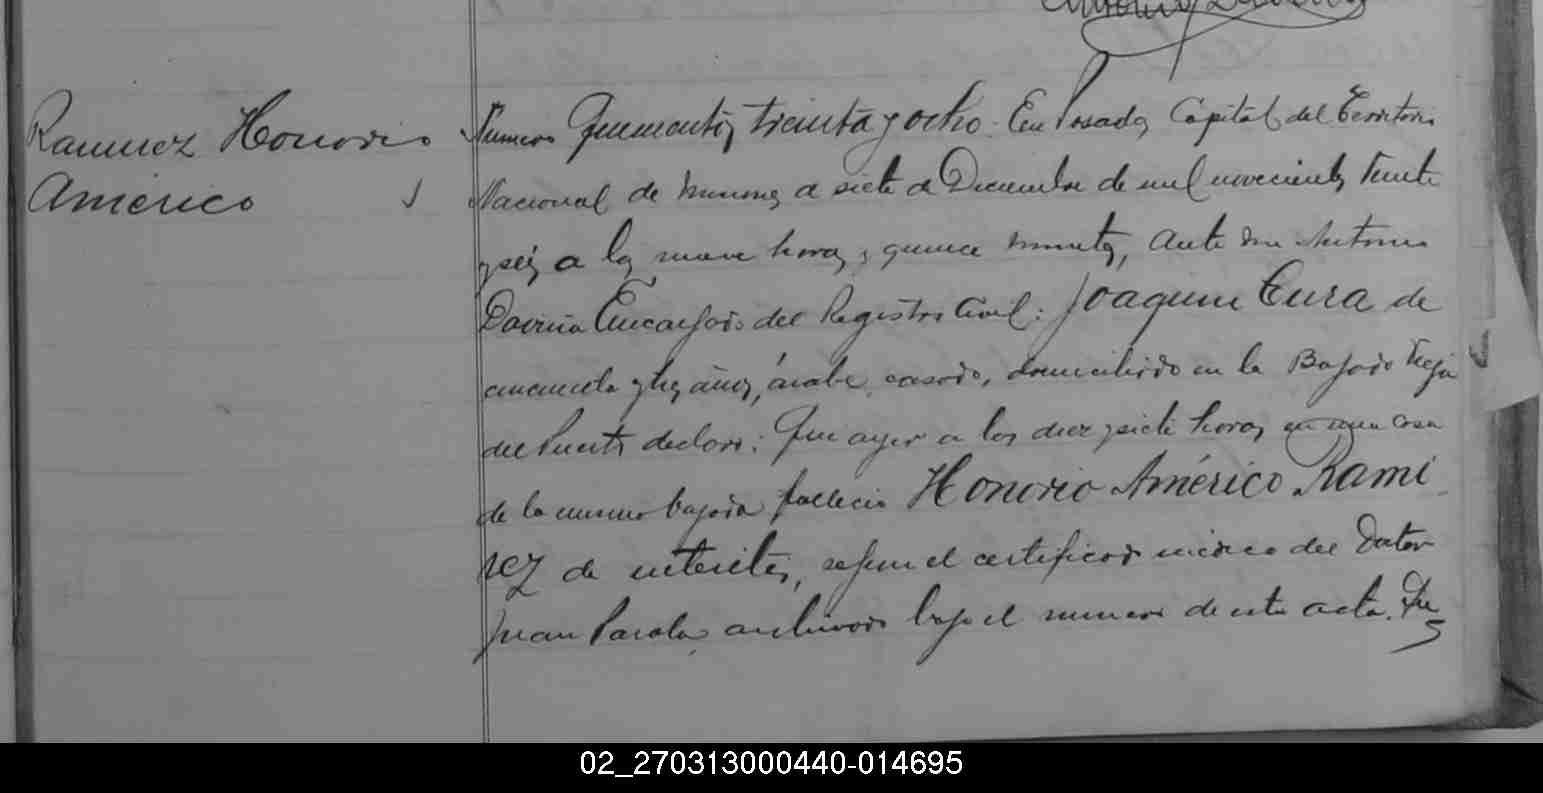 Antonio
Ramirez Honorio
Américo
Numero Quinientos treinta y ocho. En Posadas, Capital del Territorio
Nacional de Misiones, a siete de Diciembre de mil novecientos treinta
y seis a las nueve horas y quince minutos, ante mi Antonio
Encargado del Registro Civil: Joaquin Cura de
cincuenta y tres años, árabe, casado, domiciliado en la Bajada Vieja
del Puerto declaró: Que ayer a las diez y siete horas en una casa
de la misma bajada falleció Honorio Américo Rami
rez de enteritis, segun el certificado médico del Doctor
Juan Parola, archivado bajo el numero de esta acta. Que
02_270313000440-014695